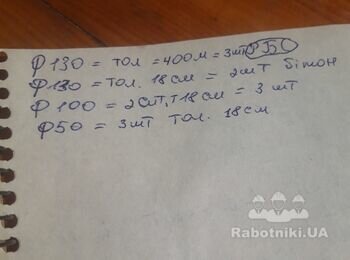 Ф130 = тол = 400м = 3шт РБС
Ф130 = тол. 18см = 2шт бітон
Ф100 = 2смт, т18см = 3 шт
Ф50 = 3шт тол. 18см
Rabotniki.UA